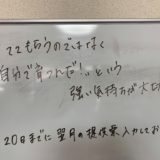 ててもらうのではなく
自分で育つんだ!!という
強い気持ちが大切
20日までに翌月の提供票入力してお